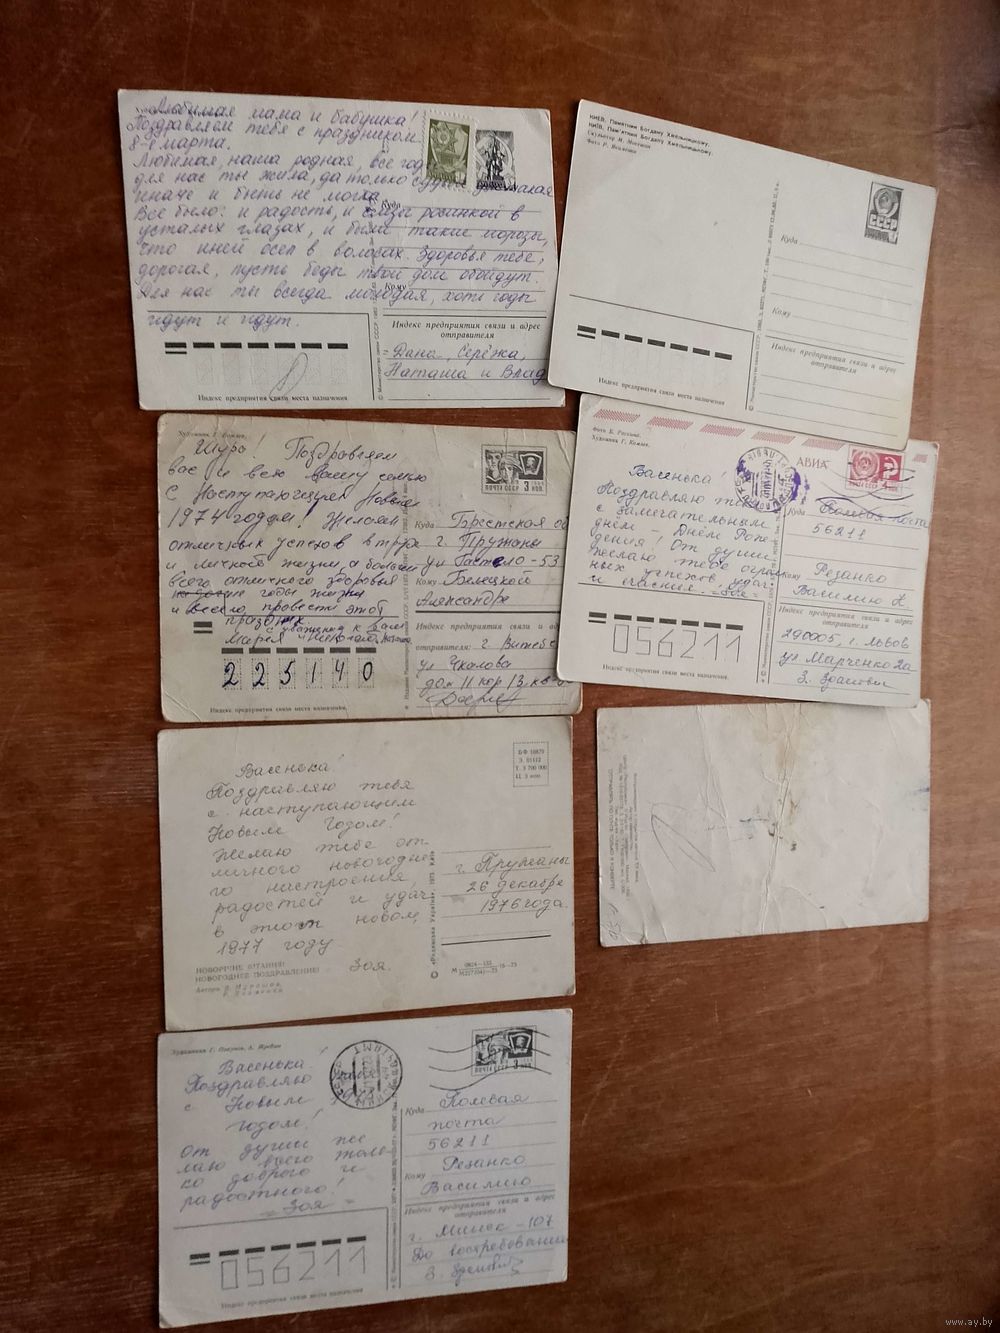 Любимая мама и бабушка!
Поздравляем тебя с праздником
8-е марта.
Любимая, наша родная, все годы
для нас ты жила, да только судьба
иначе и быть не могла
Все было: и радость, и слезы росинкой в
усталых глазах, и были такие морозы,
что иней осел в волосах. Здоровья тебе,
дорогая, пусть беды твой дом обойдут.
Для нас ты всегда молодая, хоть годы
идут и идут.
Куда
Кому
Индекс предприятия связи и адрес
отправителя
Дана, Серёжа,
Наташа и Влад
Индекс предприятия связи места назначения
КИЕВ. Памятник Богдану Хмельницкому.
КИЇВ. Пам'ятник Богдану Хмельницькому.
СССР
Куда
Кому
Индекс предприятия связи и адрес
отправителя
Индекс предприятия связи места назначения
Художник Г. Комлев.
Шура! Поздравляем
вас и всю вашу семью
с Наступающим Новым
1974 годом! Желаем
отличных успехов в труде
и личной жизни, а больше
всего отличного здоровья
годы жизни
и весело провести этот
праздник
с уважением к Вам
Мария и
ПОЧТА СССР 3 КОП.
Куда Брестская об
г. Пружаны
ул Гастело-53
Кому Белецкой
Александре
Индекс предприятия связи и адрес
отправителя: г. Витебс
ул Чкалова
дом 11 кор 13 кв
225140
Индекс предприятия связи места назначения.
Художник Г. Комлев.
АВИА
ПОЧТА СССР
Васенька!
Поздравляю тебя
с замечательным
днём Днём Рож-
дения! От души
желаю тебе огром
ных успехов, удач
и счастья. =Зоя=
Куда Полевая почта
56211
Кому Резанко
Василию К.
Индекс предприятия связи и адрес
отправителя
290005, г. Львов
ул Марченко 2а
056211
Индекс предприятия связи места назначения.
Васенька!
Поздравляю тебя
с наступающим
Новым Годом!
Желаю тебе от
личного новогодне
го настроения,
радостей и удач
в этом новом,
1977 году
Зоя.
НОВОРІЧНЕ ВІТАННЯ!
НОВОГОДНЕЕ ПОЗДРАВЛЕНИЕ!
БФ 16879
Т. 3 700 000
Ц. 3 коп
г. Пружаны
26 декабря
1976 года.
Васенька!
Поздравляю
с Новым
годом!
От души же
лаю всего толь-
ко доброго и
радостного!
=Зоя=
ПОЧТА СССР 3 КОП.
Куда Полевая
почта
56211
Кому Резанко
Василию
Индекс предприятия связи и адрес
отправителя
г. Минск-107
До востребования
056211
Индекс предприятия связи места назначения
www.ay.by